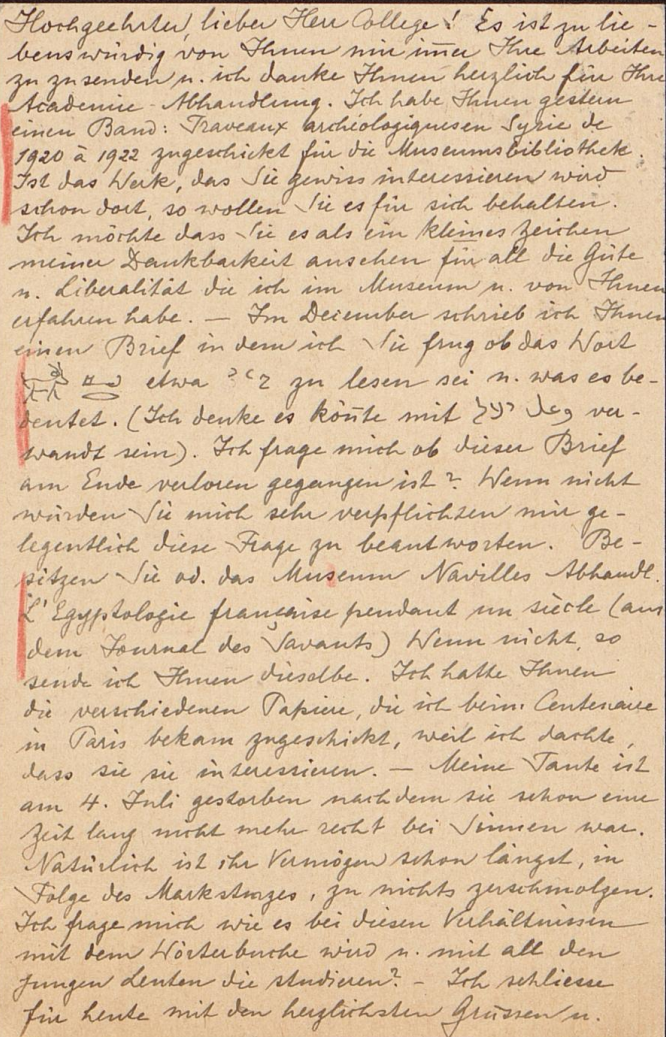 Hochgeehrter, lieber Herr College! Es ist zu lie-
benswürdig von Ihnen mir im̄er Ihre Arbeiten
zu zusenden u. ich danke Ihnen herzlich für Ihre
Academie-Abhandlung. Ich habe Ihnen gestern
einen Band: Traveaux archéologiques en Syrie de
1920 à 1922 zugeschickt für die Museumsbibliothek.
Ist das Werk, das Sie gewiss interessieren wird
schon dort, so wollen Sie es für sich behalten.
Ich möchte dass Sie es als ein kleines Zeichen
meiner Dankbarkeit ansehen für all die Güte
u. Liberalität die ich im Museum u. von Ihnen
erfahren habe. — Im December schrieb ich Ihnen
einen Brief in dem ich Sie frug ob das Wort
etwa zu lesen sei u. was es be-
deutet. (Ich denke es kön̄te mit ver-
wandt sein). Ich frage mich ob dieser Brief
am Ende verloren gegangen ist? Wenn nicht
würden Sie mich sehr verpflichten mir ge-
legentlich diese Frage zu beantworten. Be-
sitzen Sie od. das Museum Navilles Abhandl.
L'Egyptologie française pendant un siècle (aus
dem Journal des Savants) Wenn nicht, so
sende ich Ihnen dieselbe. Ich hatte Ihnen
die verschiedenen Papiere, die ich beim Centenaire
in Paris bekam zugeschickt, weil ich dachte,
dass sie sie interessieren. — Meine Tante ist
am 4. Juli gestorben nachdem sie schon eine
Zeit lang nicht mehr recht bei Sinnen war.
Natürlich ist ihr Vermögen schon längst, in
Folge des Marksturzes, zu nichts zerschmolzen.
Ich frage mich wie es bei diesen Verhältnissen
mit dem Wörterbuche wird u. mit all den
jungen Leuten die studieren? – Ich schliesse
für heute mit den herzlichsten Grüssen u.